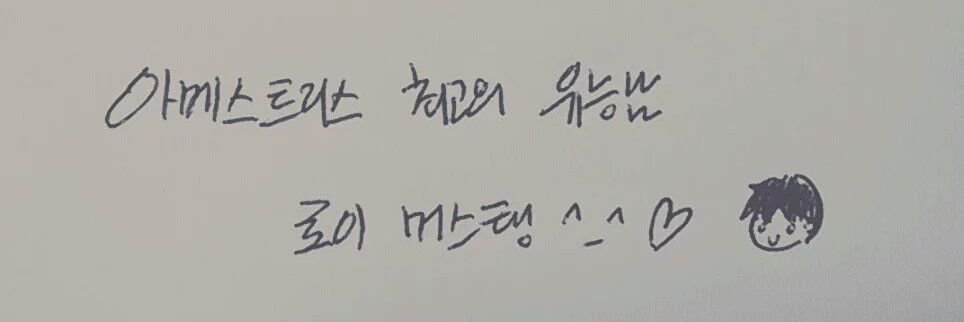 아메스트리스 최고의 유능남
로이 머스탱 ^_^ ♡